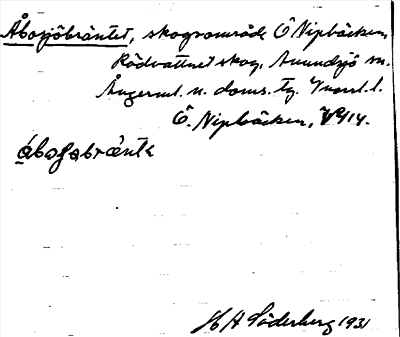 Åbosjöbräntet, skogsområde Ö Nipbäcken,
Rödvattnet skog, Anundsjö sn.
Ångerml. n. doms. tg. Vnorrl. l.
Ö. Nipbäcken,
åbosjabrånta
H A Söderberg 1931